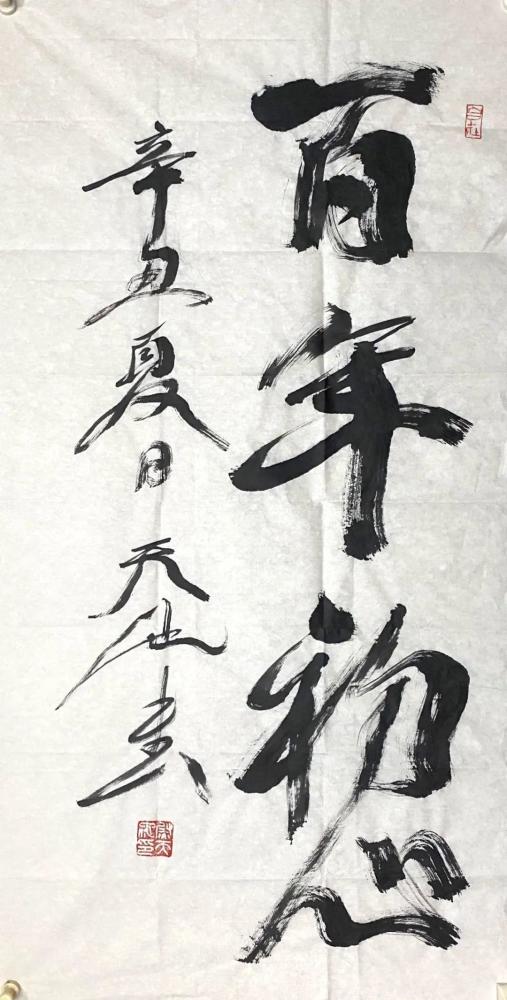 百年初心
辛丑夏日 天池书